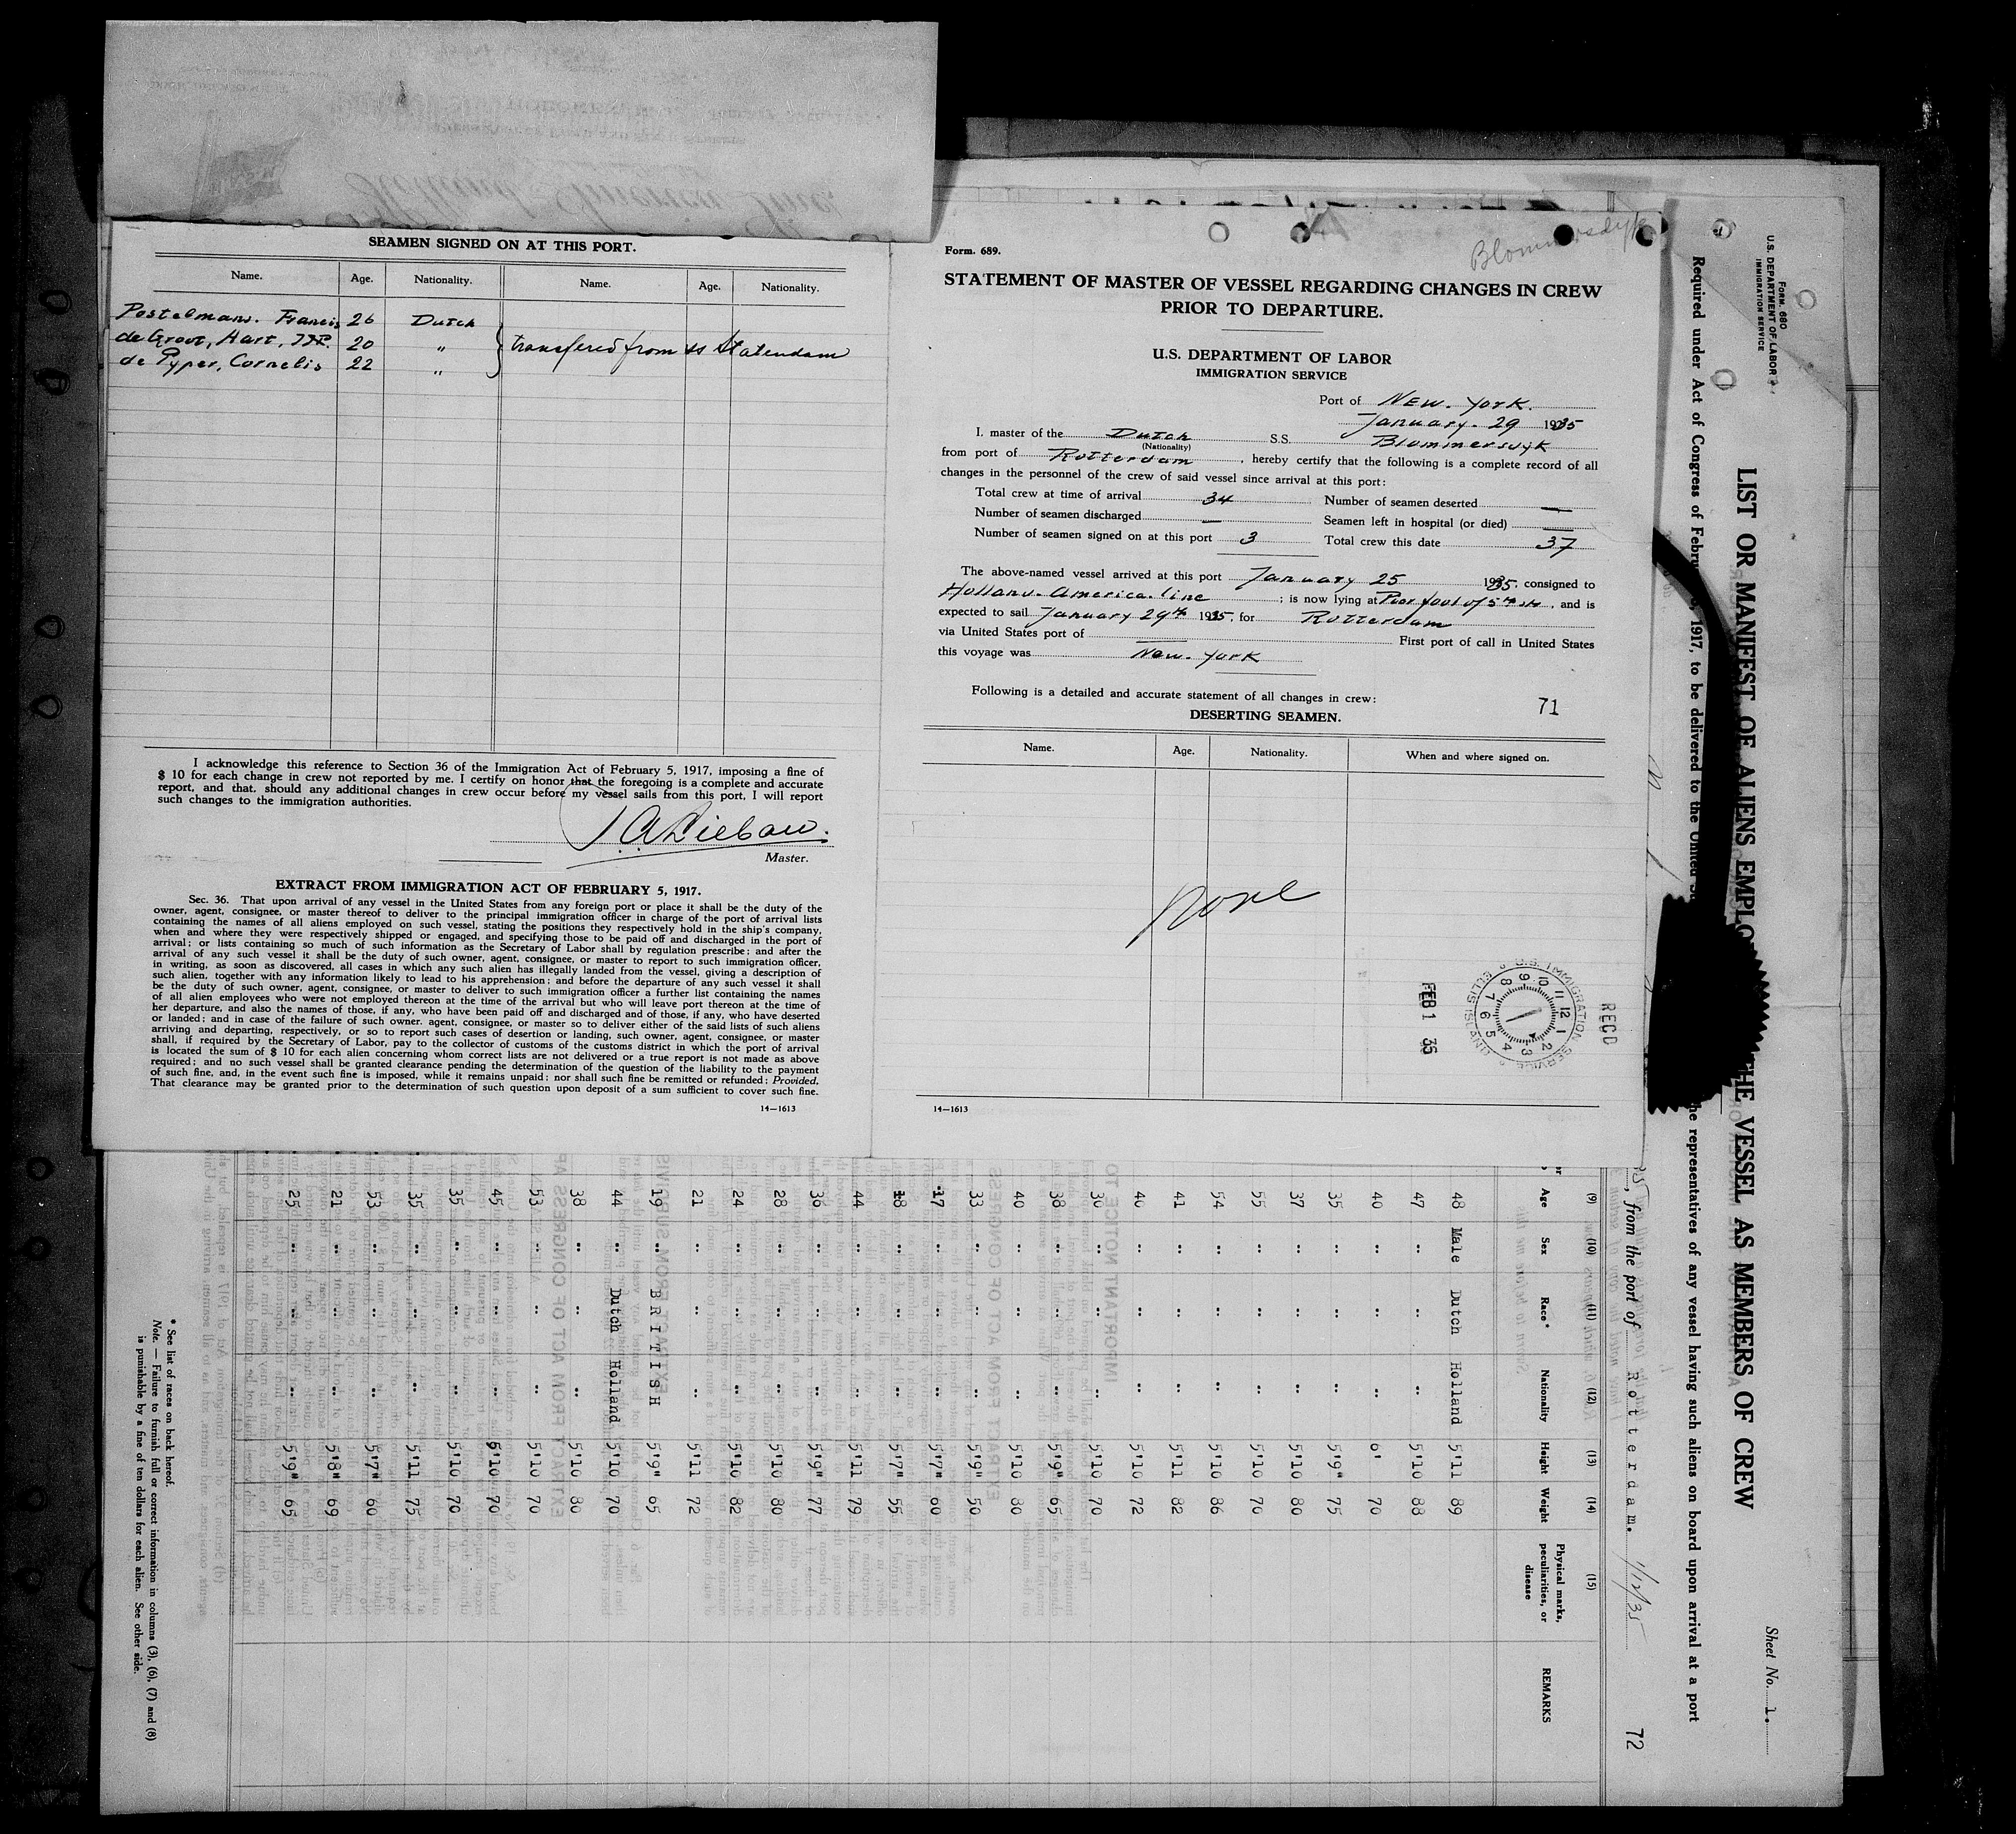 SEAMEN SIGNED ON AT THIS PORT.
Name. Age. Nationality. Name. Age. Nationality.
Postelmans. Francis 26 Dutch
de Groot, Hart, 20 "
de Pyper, Cornelis 22 "
transfered from ss Statendam
I acknowledge this reference to Section 36 of the Immigration Act of February 5, 1917, imposing a fine of
$ 10 for each change in crew not reported by me. I certify on honor that the foregoing is a complete and accurate
report, and that, should any additional changes in crew occur before my vessel sails from this port, I will report
such changes to the immigration authorities.
Master.
EXTRACT FROM IMMIGRATION ACT OF FEBRUARY 5, 1917.
Sec. 36. That upon arrival of any vessel in the United States from any foreign port or place it shall be the duty of the
owner, agent, consignee, or master thereof to deliver to the principal immigration officer in charge of the port of arrival lists
containing the names of all aliens employed on such vessel, stating the positions they respectively hold in the ship's company,
when and where they were respectively shipped or engaged, and specifying those to be paid off and discharged in the port of
arrival; or lists containing so much of such information as the Secretary of Labor shall by regulation prescribe; and after the
arrival of any such vessel it shall be the duty of such owner, agent, consignee, or master to report to such immigration officer,
in writing, as soon as discovered, all cases in which any such alien has illegally landed from the vessel, giving a description of
such alien, together with any information likely to lead to his apprehension; and before the departure of any such vessel it shall
be the duty of such owner, agent, consignee, or master to deliver to such immigration officer a further list containing the names
of all alien employees who were not employed thereon at the time of the arrival but who will leave port thereon at the time of
her departure, and also the names of those, if any, who have been paid off and discharged and of those, if any, who have deserted
or landed; and in case of the failure of such owner, agent, consignee, or master so to deliver either of the said lists of such aliens
arriving and departing, respectively, or so to report such cases of desertion or landing, such owner, agent, consignee, or master
shall, if required by the Secretary of Labor, pay to the collector of customs of the customs district in which the port of arrival
is located the sum of $ 10 for each alien concerning whom correct lists are not delivered or a true report is not made as above
required; and no such vessel shall be granted clearance pending the determination of the question of the liability to the payment
of such fine, and, in the event such fine is imposed, while it remains unpaid; nor shall such fine be remitted or refunded: Provided,
That clearance may be granted prior to the determination of such question upon deposit of a sum sufficient to cover such fine.
14—1613
Blommersdyk
Form. 689.
STATEMENT OF MASTER OF VESSEL REGARDING CHANGES IN CREW
PRIOR TO DEPARTURE.
U.S. DEPARTMENT OF LABOR
IMMIGRATION SERVICE
Port of New. York.
January. 29 1935
I, master of the Dutch S.S. Blommersdyk
(Nationality)
from port of Rotterdam, hereby certify that the following is a complete record of all
changes in the personnel of the crew of said vessel since arrival at this port:
Total crew at time of arrival 34 Number of seamen deserted —
Number of seamen discharged — Seamen left in hospital (or died) —
Number of seamen signed on at this port 3 Total crew this date 37
The above-named vessel arrived at this port January 25 1935, consigned to
Holland. America. line; is now lying at foot of 5th st, and is
expected to sail January 29th 1935, for Rotterdam
via United States port of — First port of call in United States
this voyage was New. York
Following is a detailed and accurate statement of all changes in crew:
71
DESERTING SEAMEN.
Name. Age. Nationality. When and where signed on.
none
RECD
U.S. IMMIGRATION SERVICE ELLIS ISLAND
FEB 1 35
14—1613
Form. 680
U.S. DEPARTMENT OF LABOR
IMMIGRATION SERVICE
Sheet No. 1.
LIST OR MANIFEST OF ALIENS EMPLO THE VESSEL AS MEMBERS OF CREW
Required under Act of Congress of February 5, 1917, to be delivered to the United he representatives of any vessel having such aliens on board upon arrival at a port
, from the port of Rotterdam. 1/12/35
72
(9) (10) (11) (12) (13) (14) (15)
Age Sex Race* Nationality Height Weight Physical marks, peculiarities, or disease REMARKS
48 Male Dutch Holland 5'11 89
47 " " " 5'10 88
40 " " " 6' 70
35 " " " 5'9" 75
37 " " " 5'10 80
55 " " " 5'10 70
54 " " " 5'10 86
41 " " " 5'11 82
40 " " " 5'10 72
30 " " " 5'10 70
38 " " " 5'9" 65
40 " " " 5'10 80
33 " " " 5'9" 50
17 " " " 5'7" 60
18 " " " 5'7" 55
44 " " " 5'11 79
36 " " " 5'9" 77
28 " " " 5'10 80
24 " " " 5'10 82
21 " " " 5'11 72
19 " BRITISH 5'9" 65
44 " Dutch Holland 5'10 70
38 " " " 5'10 80
53 " " " 5'10 70
45 " " " 5'10 70
35 " " " 5'10 70
35 " " " 5'11 75
53 " " " 5'7" 60
21 " " " 5'8" 69
25 " " " 5'9" 65
* See list of races on back hereof.
Note. — Failure to furnish full or correct information in columns (3), (6), (7) and (8)
is punishable by a fine of ten dollars for each alien. See other side.